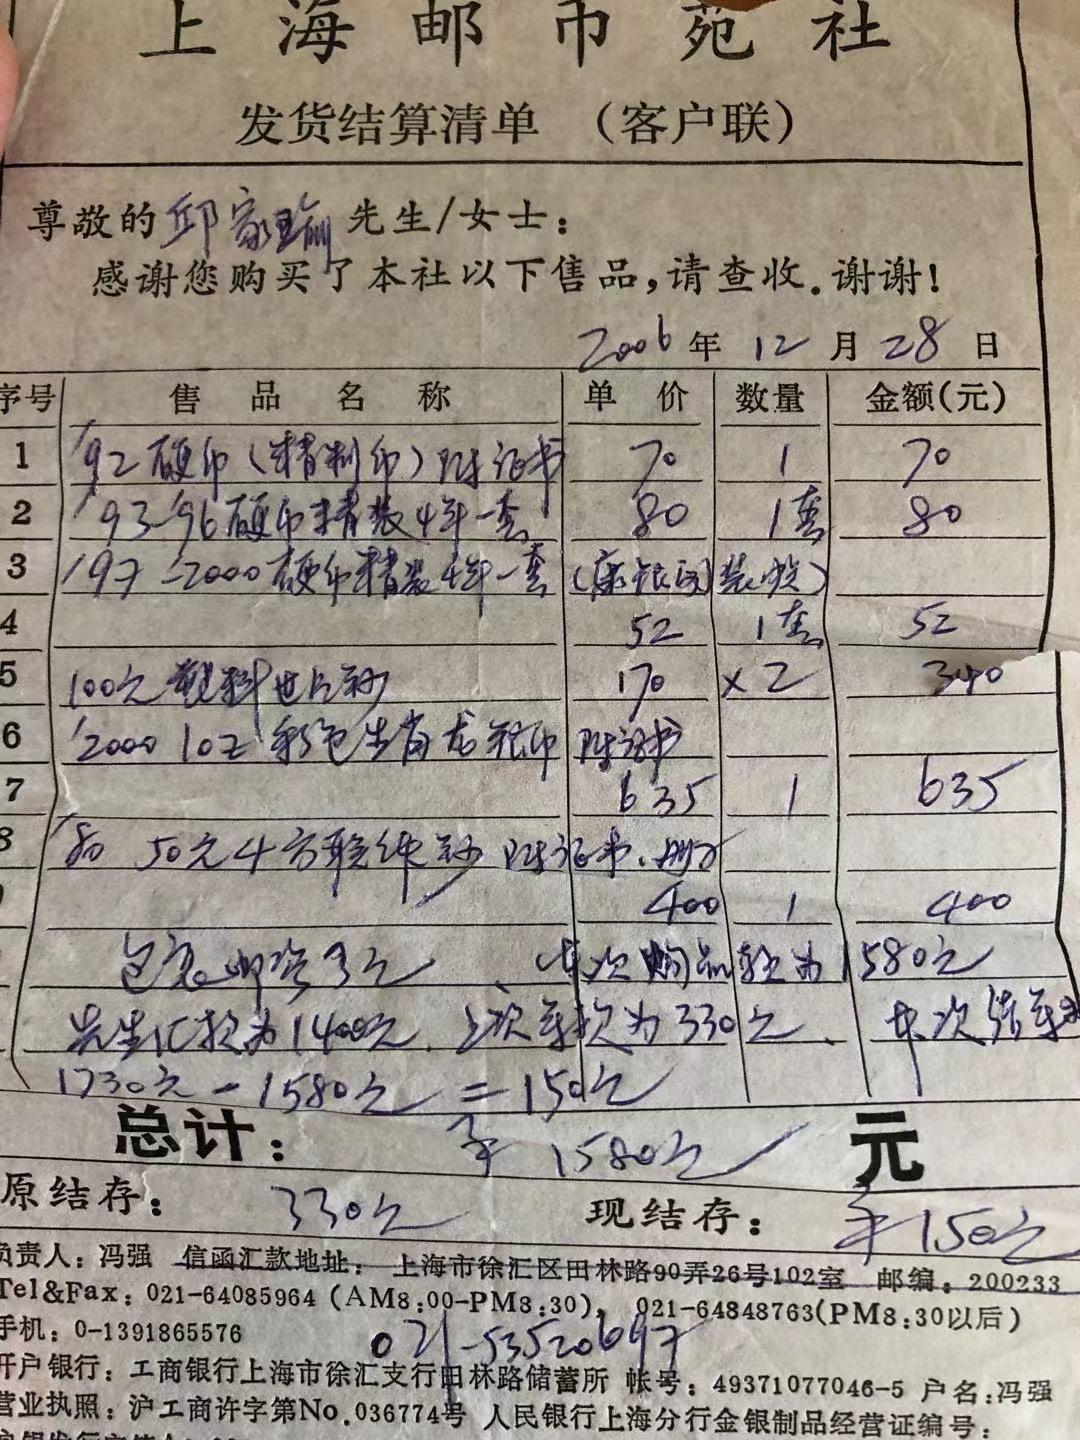 上海邮币苑社
发货结算清单 （客户联）
尊敬的邱家瑜先生/女士：
感谢您购买了本社以下售品，请查收．谢谢！
2006年12月28日
序号 售品名称 单价 数量 金额(元)
1 '92硬币(精制币)附证书 70 1 70
2 '93-96硬币精装4年一套 80 1套 80
3 '97-2000硬币精装4年一套(康银阁装帧)
4 52 1套 52
5 100元塑料世纪钞 170 ×2 340
6 '2000 1oz 彩色生肖龙银币 附证书
7 635 1 635
8 '80 50元4方联纯钞 附证书、册
400 1 400
包裹邮资3元 本次购品款为1580元
先生汇款为1400元. 上次存款为330元、本次结存为
1730元-1580元=150元
总计：￥1580元 元
原结存：330元 现结存：￥150元
负责人：冯强 信函汇款地址：上海市徐汇区田林路90弄26号102室 邮编：200233
Tel&Fax：021-64085964 (AM8:00-PM8:30)， 021-64848763(PM8:30以后)
手机：0-1391865576
021-53520697
开户银行：工商银行上海市徐汇支行田林路储蓄所 帐号：49371077046-5 户名：冯强
营业执照：沪工商许字第No.036774号 人民银行上海分行金银制品经营证编号：